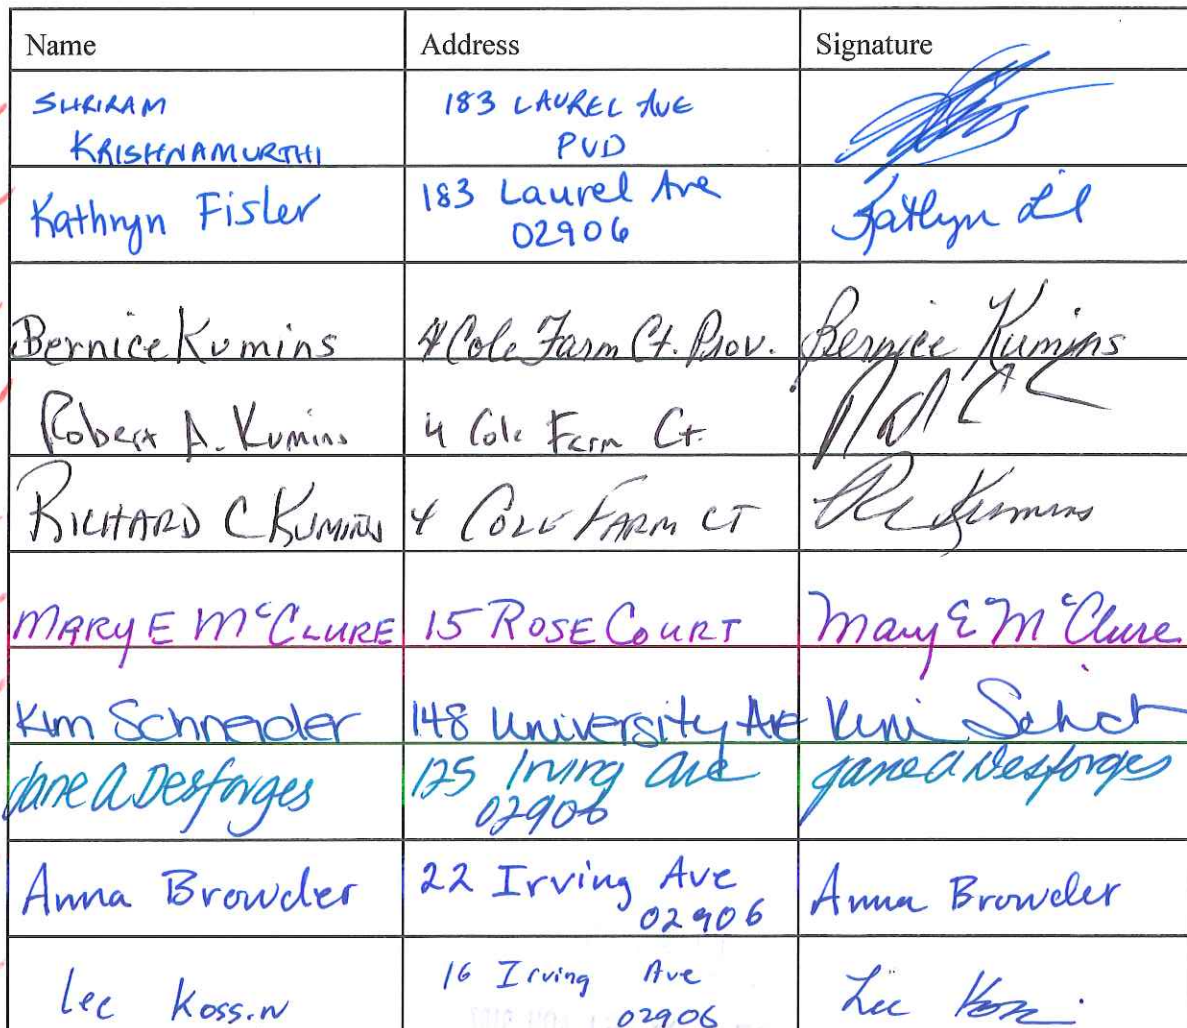 Name Address Signature
SHRIRAM 183 LAUREL AVE
KRISHNAMURTHI PVD
Kathryn Fisler 183 Laurel Ave Kathryn
02906
Bernice Kumins 4 Cole Farm Ct. Prov. Bernice Kumins
Robert A. Kumins 4 Cole Farm Ct.
RICHARD C KUMINS 4 COLE FARM CT Kumins
MARY E McCLURE 15 ROSE COURT Mary E McClure
Kim Schneider 148 University Ave Kim
Jane A Desforges 125 Irving Ave Jane A Desforges
02906
Anna Browder 22 Irving Ave Anna Browder
02906
Lee Kossin 16 Irving Ave Lee
02906